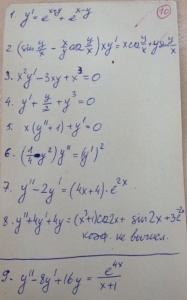 10
1. y' = e^{x+y} + e^{x-y}
2 (sin y/x - x/y cos y/x) xy' = x cos y/x + y sin y/x
3. x²y' - 3xy + x³ = 0
4. y' + y/2 + y³ = 0
5. x(y'' + 1) + y' = 0
6. (1/4 y²) y'' = (y')²
7. y'' - 2y' = (4x + 4) · e^{2x}
8. y'' + 4y' + 4y = (x³ + 1) cos 2x + sin 2x + 3e^{-2x}
коэф. не вычисл.
9. y'' - 8y' + 16y = e^{4x}/(x + 1)